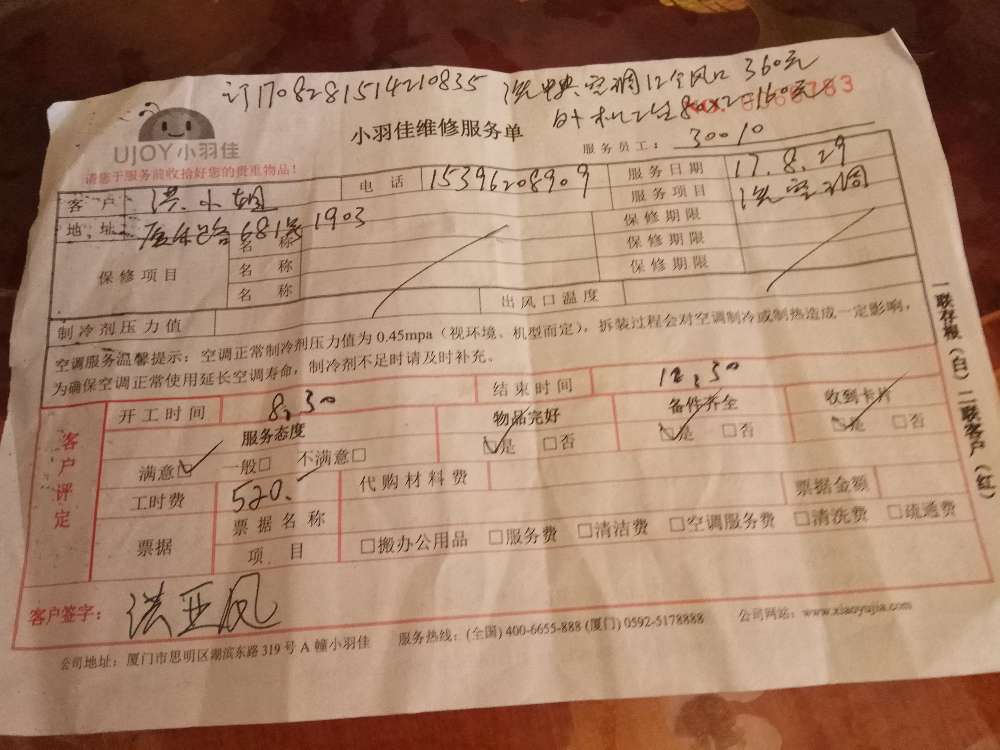 订1708281514210835 洗中央空调12个风口 360元
外机2台80X2=160元
UJOY小羽佳
小羽佳维修服务单
服务员工: 30010
请您于服务前收拾好您的贵重物品!
客户 洪小姐 电话 15396208909 服务日期 17.8.29
地址 681号1903 服务项目 洗空调
保修项目 名称 保修期限
名称 保修期限
名称 保修期限
制冷剂压力值 出风口温度
空调服务温馨提示: 空调正常制冷剂压力值为 0.45mpa (视环境、机型而定), 拆装过程会对空调制冷或制热造成一定影响,
为确保空调正常使用延长空调寿命, 制冷剂不足时请及时补充。
客户评定
开工时间 8:30 结束时间 12:30
服务态度 物品完好 备件齐全 收到卡片
满意☑ 一般□ 不满意□ ☑是 □否 ☑是 □否 ☑是 □否
工时费 520.- 代购材料费 票据金额
票据 票据名称
项目 □搬办公用品 □服务费 □清洁费 □空调服务费 □清洗费 □疏通费
客户签字: 洪亚凤
公司地址: 厦门市思明区湖滨东路 319 号 A 幢小羽佳 服务热线: (全国) 400-6655-888 (厦门) 0592-5178888 公司网站: www.xiaoyujia.com
一联存根(白)二联客户(红)